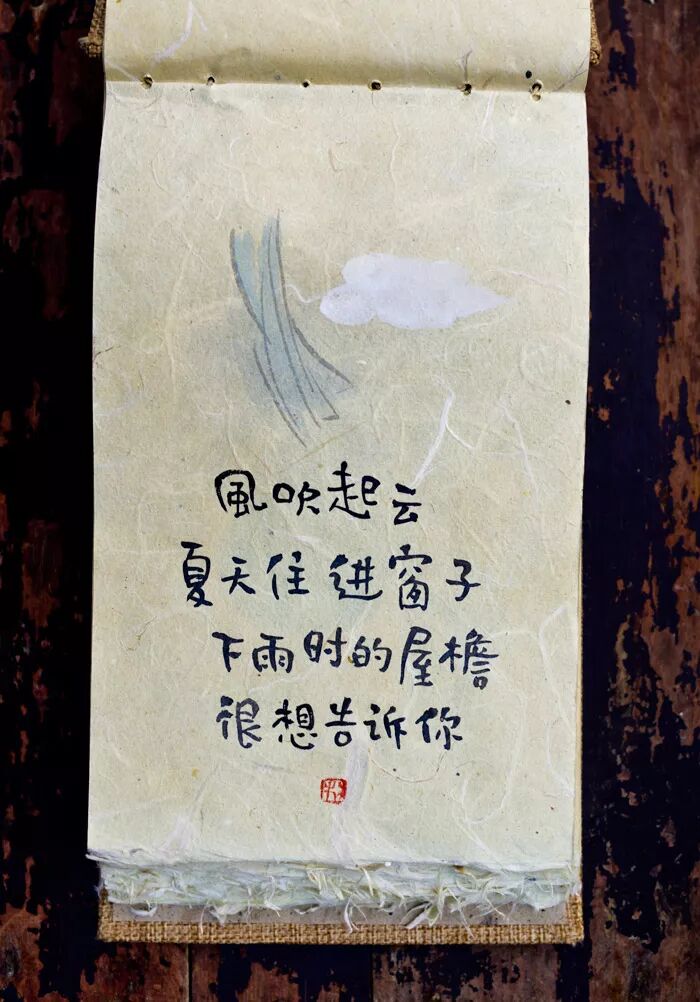 風吹起云
夏天住进窗子
下雨时的屋檐
很想告诉你